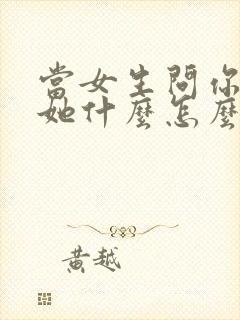 當女生問你
她什麼怎麼
黃越